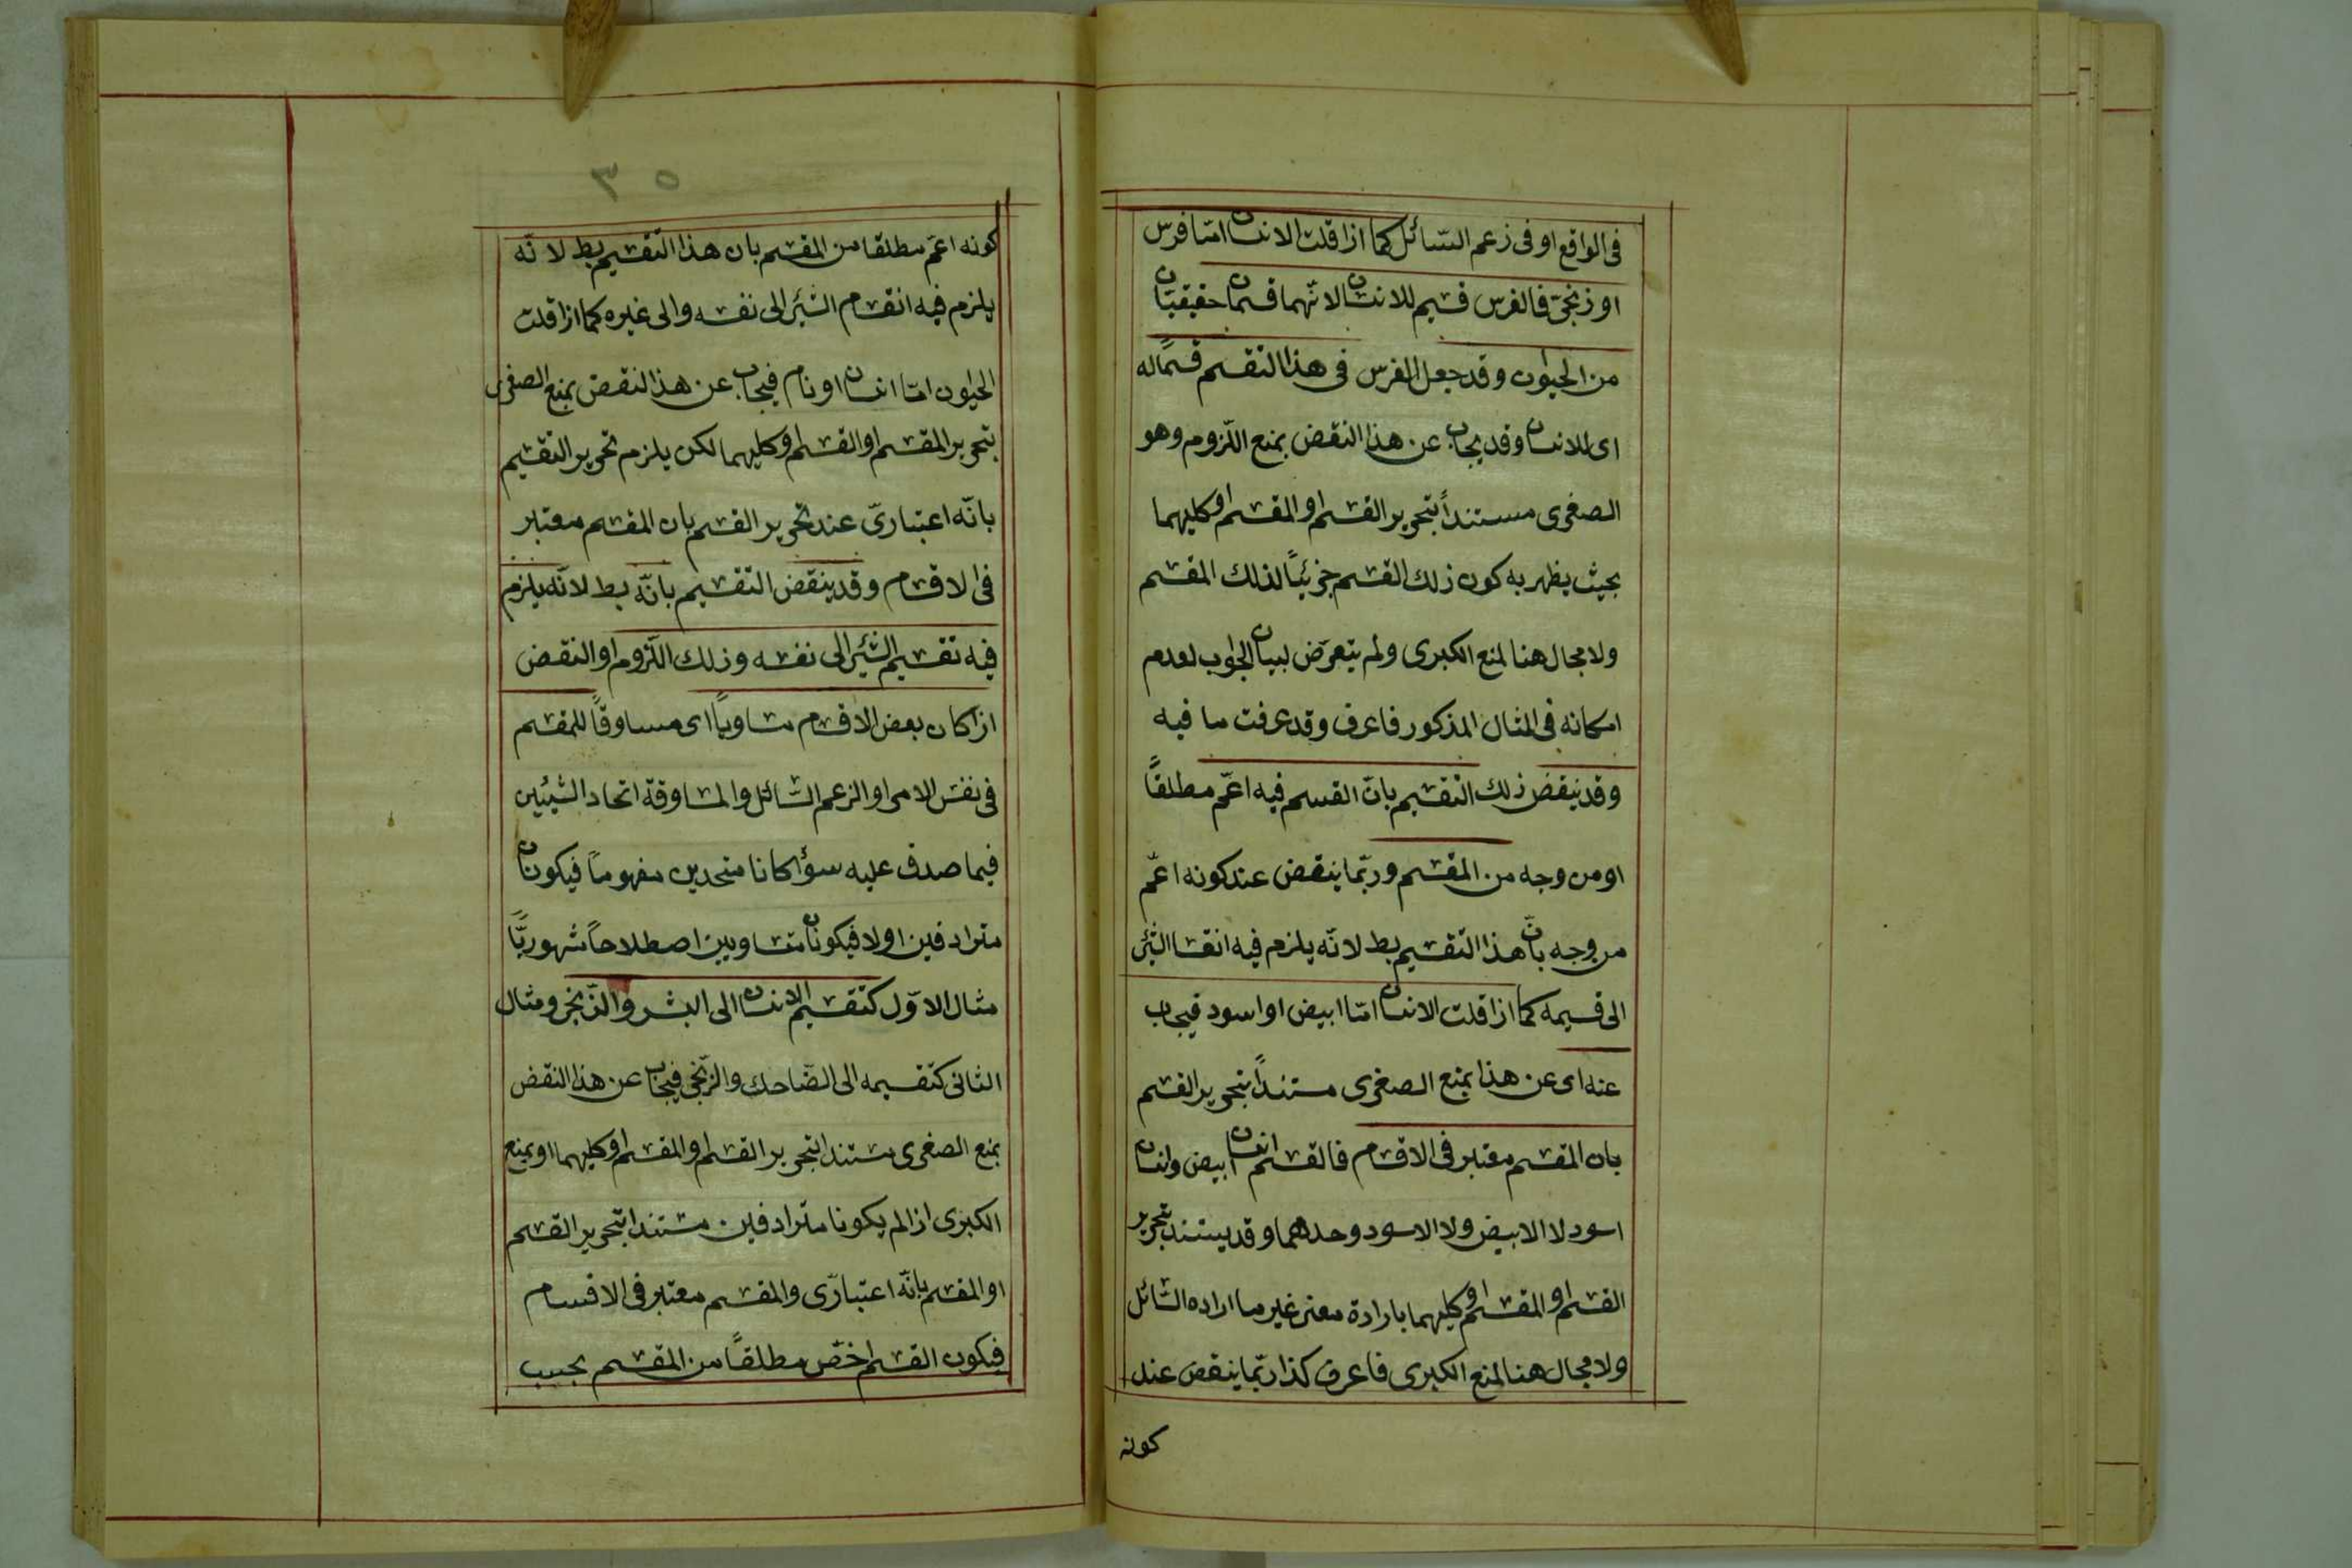 فى الواقع او فى زعم السّائل كما اذا قلت الانسان امّا فرس
او زنجىّ فالفرس قسيم للانسان لانّهما قسمان حقيقيّان
من الحيوان وقد جعل الفرس فى هذا التقسيم قسمًا له
اى للانسان وقد يجاب عن هذا النقض بمنع اللّزوم وهو
الصغرى مستنداً بتحرير القسم او المقسم او كليهما
بحيث يظهر به كون ذلك القسم جزئيًّا لذلك المقسم
ولا مجال هنا لمنع الكبرى ولم يتعرّض لبيان الجواب لعدم
امكانه فى المثال المذكور فاعرف وقد عرفت ما فيه
وقد ينقض ذلك التقسيم بانّ القسم فيه اعمّ مطلقًا
او من وجه من المقسم وربّما ينقض عند كونه اعمّ
من وجه بانّ هذا التقسيم بط لانّه يلزم فيه انقسام الشئ
الى قسيمه كما اذا قلت الانسان امّا ابيض او اسود فيجاب
عنه اى عن هذا بمنع الصغرى مستنداً بتحرير القسم
بان المقسم معتبر فى الاقسام فالقسم انسان ابيض وانسان
اسود لا الابيض ولا الاسود وحدهما وقد يستند بتحرير
القسم او المقسم او كليهما بارادة معنى غير ما اراده السّائل
ولا مجال هنا لمنع الكبرى فاعرف كذا ربّما ينقض عند
كونه
٣٥
كونه اعمّ مطلقا من المقسم بان هذا التّقسيم بط لانّه
يلزم فيه انقسام الشئ الى نفسه والى غيره كما اذا قلت
الحيوان امّا انسان او نام فيجاب عن هذا النقض بمنع الصغرى
بتحرير المقسم او القسم او كليهما لكن يلزم تحرير التقسيم
بانّه اعتبارىّ عند تحرير القسم بان المقسم معتبر
فى الاقسام وقد ينقض التّقسيم بانّه بط لانّه يلزم
فيه تقسيم الشئ الى نفسه وذلك اللّزوم او النقض
اذا كان بعض الاقسام مساوياً اى مساوقًا للمقسم
فى نفس الامر او الزعم السّائل والمساوقة اتحاد الشيئين
فيما صدق عليه سواء كانا متحدين مفهوماً فيكونان
مترادفين او لا فيكونان متساويين اصطلاحاً مشهوريًّا
مثال الاوّل كتقسيم الانسان الى البشر والزّنجى ومثال
الثانى كتقسيمه الى الضّاحك والزّنجى فيجاب عن هذا النقض
بمنع الصغرى مستندا بتحرير القسم او المقسم او كليهما او بمنع
الكبرى اذا لم يكونا مترادفين مستندا بتحرير القسم
او المقسم بانّه اعتبارىّ والمقسم معتبر فى الاقسام
فيكون القسم اخصّ مطلقًا من المقسم بحسب